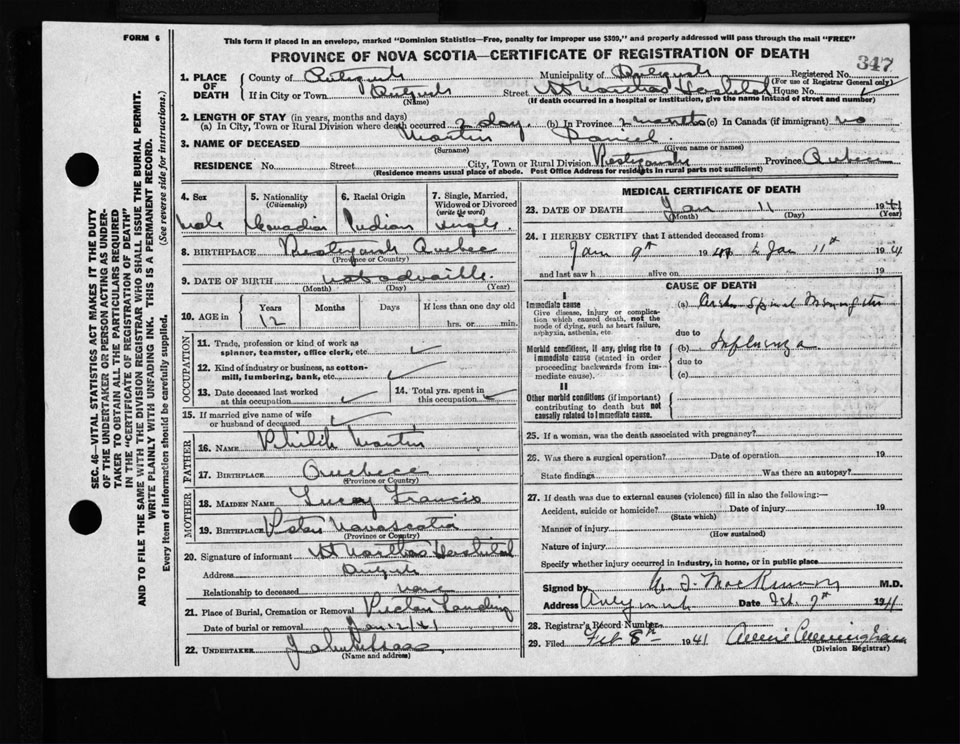 FORM 6
This form if placed in an envelope, marked "Dominion Statistics—Free, penalty for improper use $300," and properly addressed will pass through the mail "FREE"
PROVINCE OF NOVA SCOTIA—CERTIFICATE OF REGISTRATION OF DEATH
347
1. PLACE OF DEATH
County of
Municipality of
Registered No.
(For use of Registrar General only)
If in City or Town
(Name)
Street St Marthas Hospital House No.
(If death occurred in a hospital or institution, give the name instead of street and number)
2. LENGTH OF STAY (in years, months and days)
(a) In City, Town or Rural Division where death occurred 2 day. (b) In Province 2 months (c) In Canada (if immigrant) no
3. NAME OF DECEASED Martin Daniel
(Surname) (Given name or names)
RESIDENCE No. Street City, Town or Rural Division Province Quebec
(Residence means usual place of abode. Post Office Address for residents in rural parts not sufficient)
4. Sex
5. Nationality (Citizenship)
6. Racial Origin
7. Single, Married, Widowed or Divorced (write the word)
Male Canadian Indian Single
8. BIRTHPLACE Quebec
(Province or Country)
9. DATE OF BIRTH
(Month) (Day) (Year)
10. AGE in
Years Months Days If less than one day old
12 hrs. or min.
OCCUPATION
11. Trade, profession or kind of work as spinner, teamster, office clerk, etc.
12. Kind of industry or business, as cotton-mill, lumbering, bank, etc.
13. Date deceased last worked at this occupation
14. Total yrs. spent in this occupation
15. If married give name of wife or husband of deceased
FATHER
16. NAME Philip Martin
17. BIRTHPLACE Quebece
(Province or Country)
MOTHER
18. MAIDEN NAME Lucey Francis
19. BIRTHPLACE Novascotia
(Province or Country)
20. Signature of informant St Marthas Hospital
Address
Relationship to deceased none
21. Place of Burial, Cremation or Removal Pictou Landing
Date of burial or removal Jan 12/41
22. UNDERTAKER
(Name and address)
MEDICAL CERTIFICATE OF DEATH
23. DATE OF DEATH Jan 11 1941
(Month) (Day) (Year)
24. I HEREBY CERTIFY that I attended deceased from:
Jan 9th 1941 to Jan 11th 194
and last saw h alive on 19
CAUSE OF DEATH
I
Immediate cause
Give disease, injury or complication which caused death, not the mode of dying, such as heart failure, asphyxia, asthenia, etc.
(a) Spinal
due to
Morbid conditions, if any, giving rise to immediate cause (stated in order proceeding backwards from immediate cause).
(b) Influenza
due to
(c)
II
Other morbid conditions (if important) contributing to death but not causally related to immediate cause.
25. If a woman, was the death associated with pregnancy?
26. Was there a surgical operation? Date of operation 19
State findings Was there an autopsy?
27. If death was due to external causes (violence) fill in also the following:—
Accident, suicide or homicide? Date of injury 194
(State which)
Manner of injury
(How sustained)
Nature of injury
Specify whether injury occurred in industry, in home, or in public place
Signed by MacKinnon M.D.
Address Date Feb. 7th 1941
28. Registrar's Record Number
29. Filed Feb 8th 1941 Cunningham
(Division Registrar)
SEC. 46—VITAL STATISTICS ACT MAKES IT THE DUTY
OF THE UNDERTAKER OR PERSON ACTING AS UNDER-
TAKER TO OBTAIN ALL THE PARTICULARS REQUIRED
IN THE "CERTIFICATE OF REGISTRATION OF DEATH"
AND TO FILE THE SAME WITH THE DIVISION REGISTRAR WHO SHALL ISSUE THE BURIAL PERMIT.
WRITE PLAINLY WITH UNFADING INK. THIS IS A PERMANENT RECORD.
Every item of information should be carefully supplied. (See reverse side for instructions.)